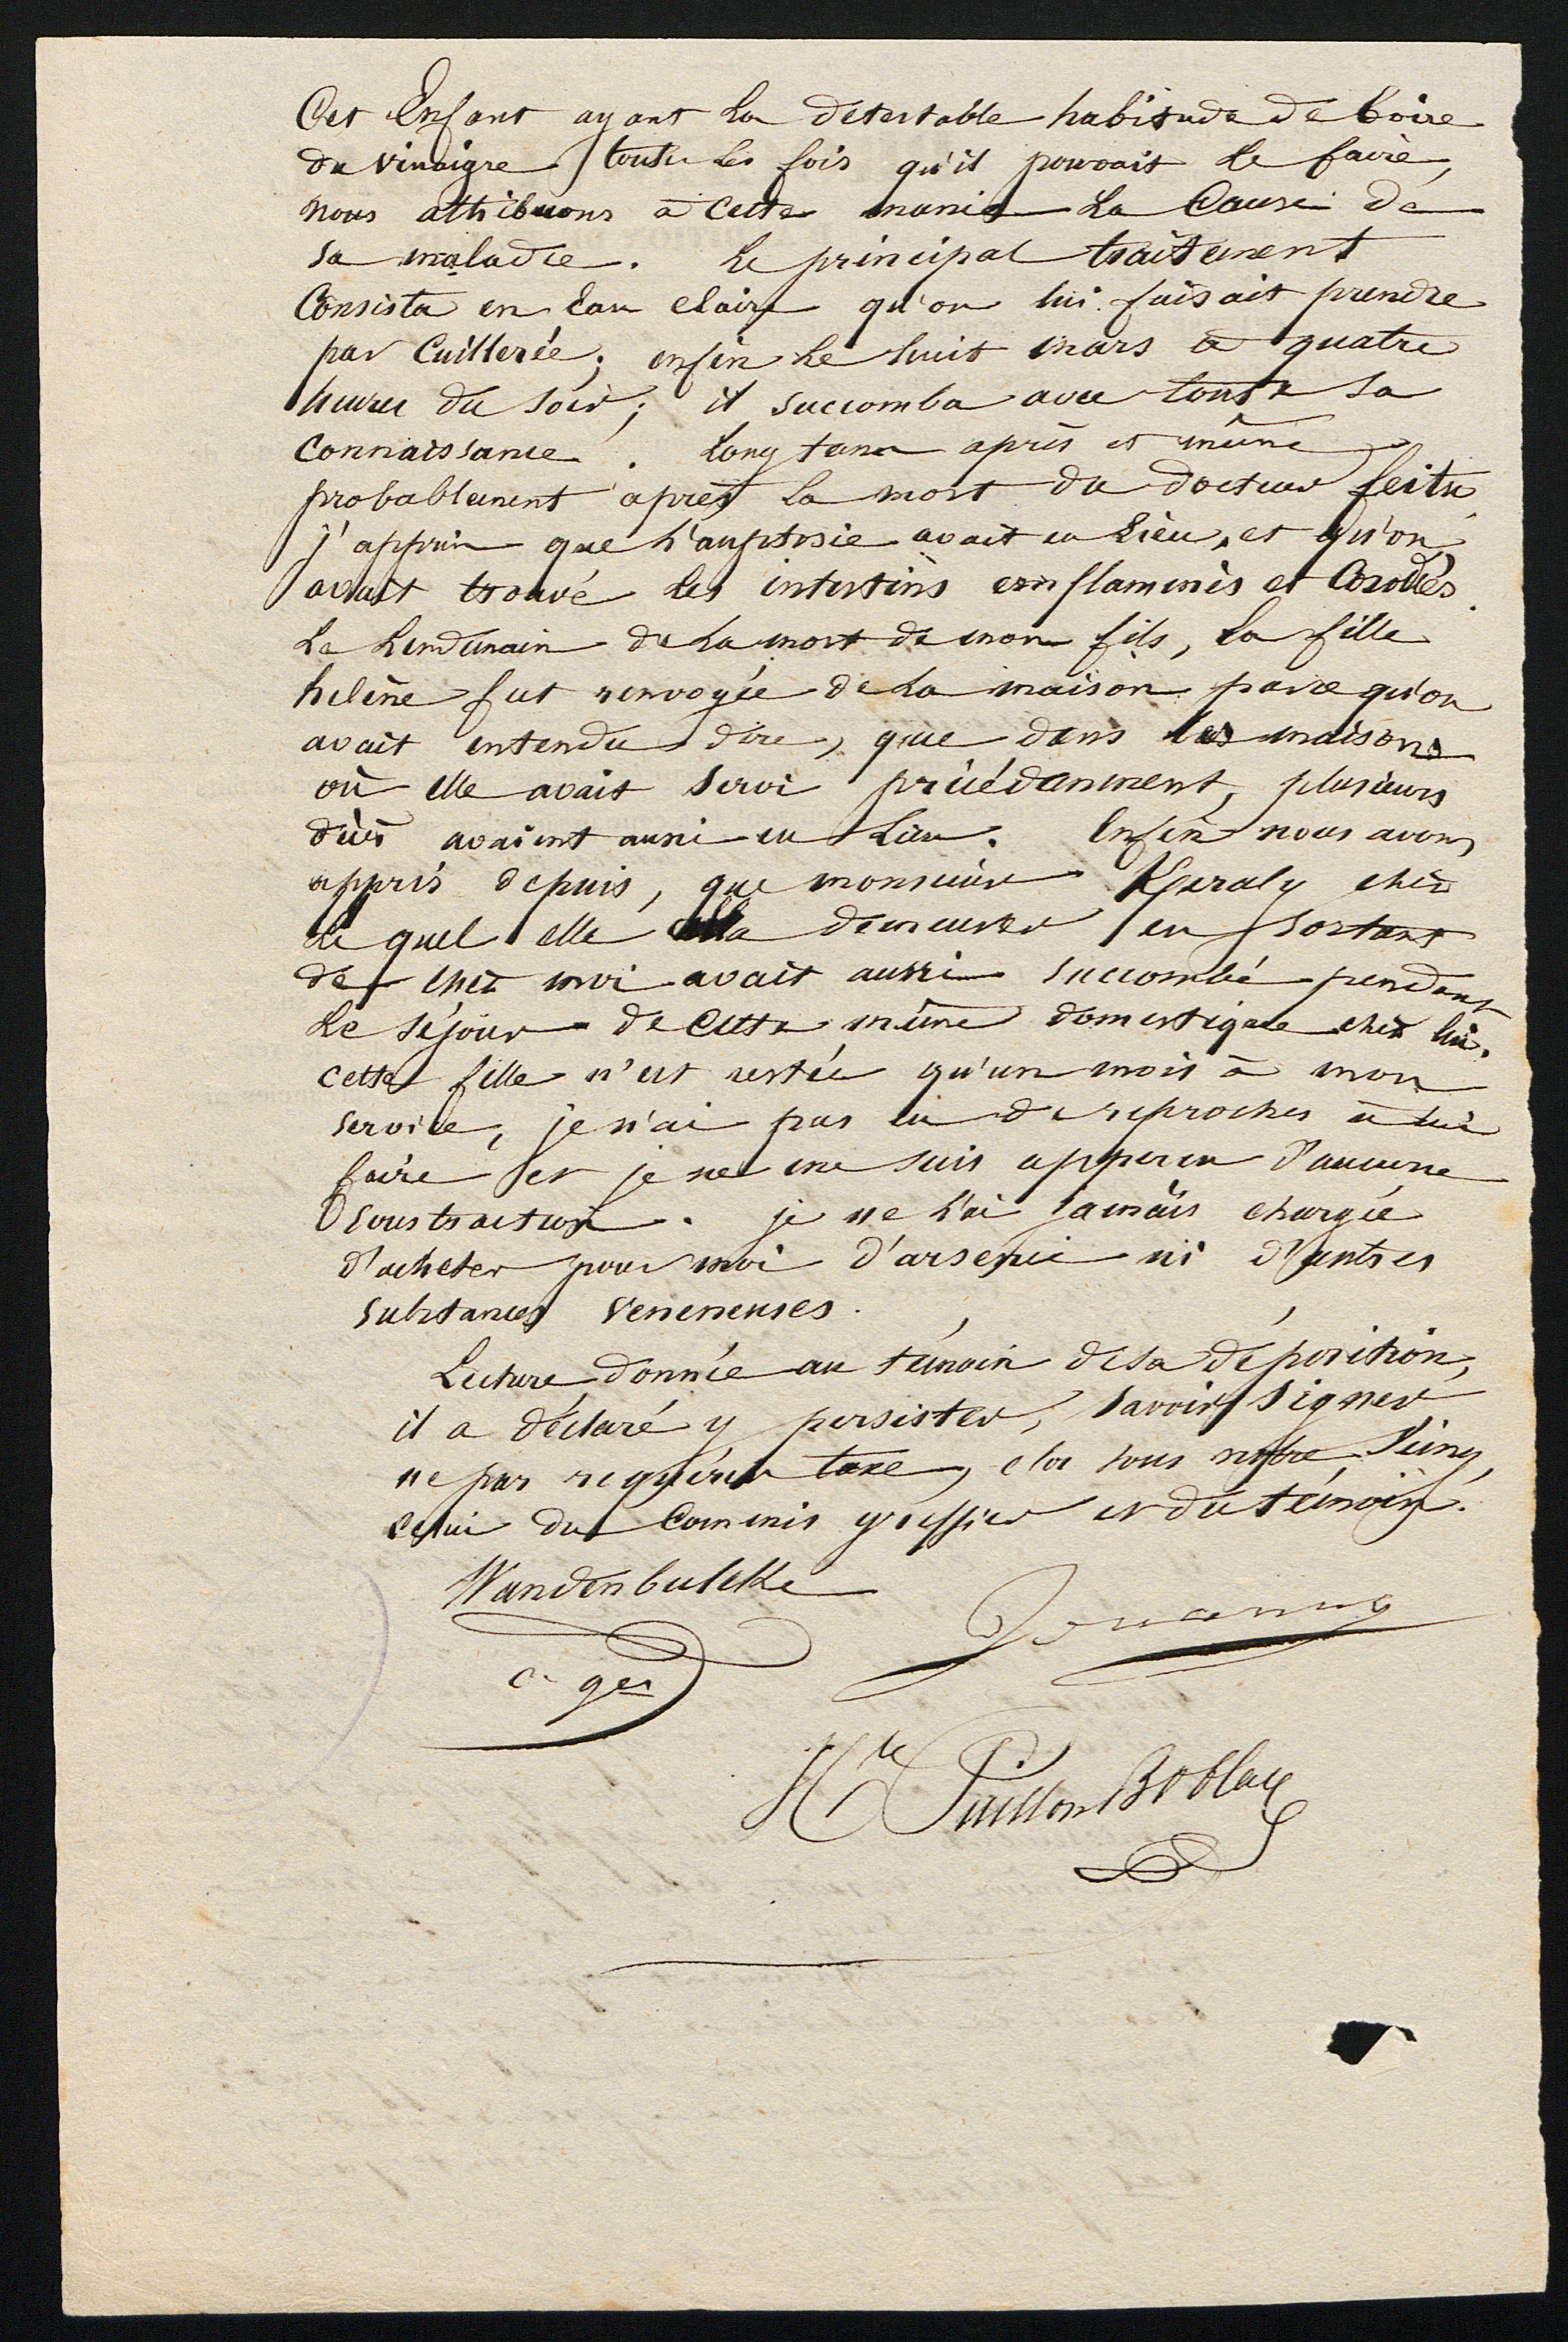 Cet Enfant ayant la detestable habitude de boire
du vinaigre toutes les fois qu'il pouvait le faire,
nous attribuons à cette manie la Cause de
sa maladie. le principal traitement
Consista en Eau claire qu'on lui faisait prendre
par Cuillerée; enfin le huit mars à quatre
heures du soir; il succomba avec toute sa
connaissance. Long tems après et même
probablement après la mort du docteur
j'appris que l'auptosie avait eu lieu, et qu'on
avait trouvé les intestins enflammés et Corodés.
Le Lendemain de la mort de mon fils, la fille
helène fut renvoyée de la maison parce qu'on
avait entendu dire, que dans les maisons
où elle avait servi précédamment, plusieurs
décès avaient aussi eu lieu. Enfin nous avons
appris depuis, que monsieur Kyeraly chez
le quel elle alla demeurer en sortant
de chez moi avait aussi succombé pendant
le séjour de cette même domestique chez lui.
cette fille n'est restée qu'un mois à mon
service, je n'ai pas eu de reproches à lui
faire et je ne me suis apperçu d'aucune
soustraction. je ne l'ai jamais chargée
d'acheter pour moi d'arsenic ni d'autres
substances veneneuses.
Lecture donnée au témoin de sa déposition,
il a déclaré y persister, savoir signer
ne pas requérir taxe, clos sous notre Seing,
celui du Commis greffier et du témoin.
Vandenbulcke
c. ger
Jouanno
Hte Puillon Boblaye